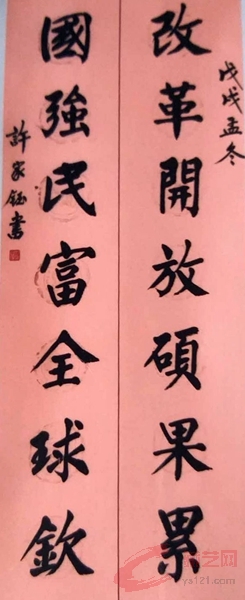 戊戌孟冬
改革開放碩果累
國強民富全球欽
許家鈺書
ys121.com